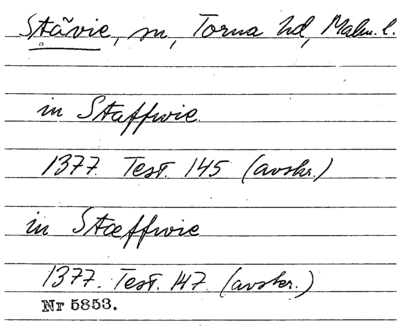 Stävie, sn, Torna hd, Malm. l.
in Staffwie
1377 Test. 145 (avskr.)
in Stæffwie
1377. Test. 147 (avskr.)
Nr 5853.